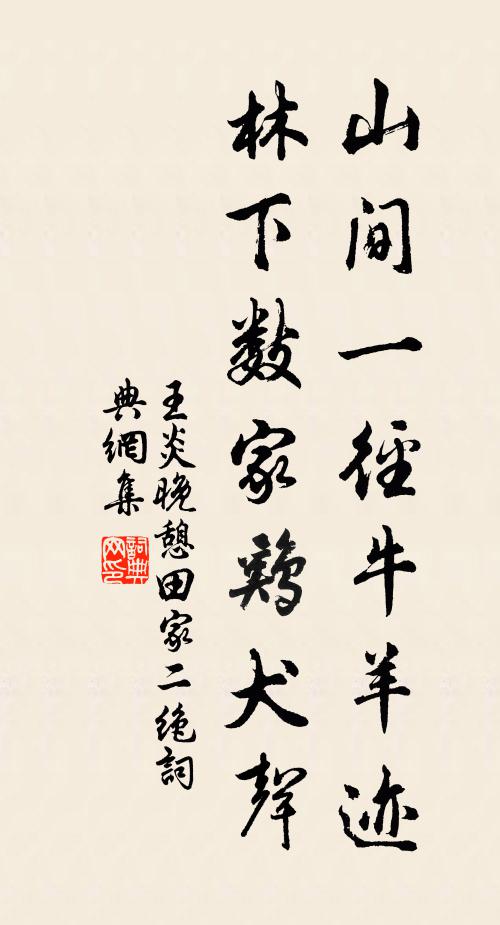 山间一径牛羊迹
林下数家鷄犬聲
王炎晚憩田家二绝詞
典網集
詞典网印